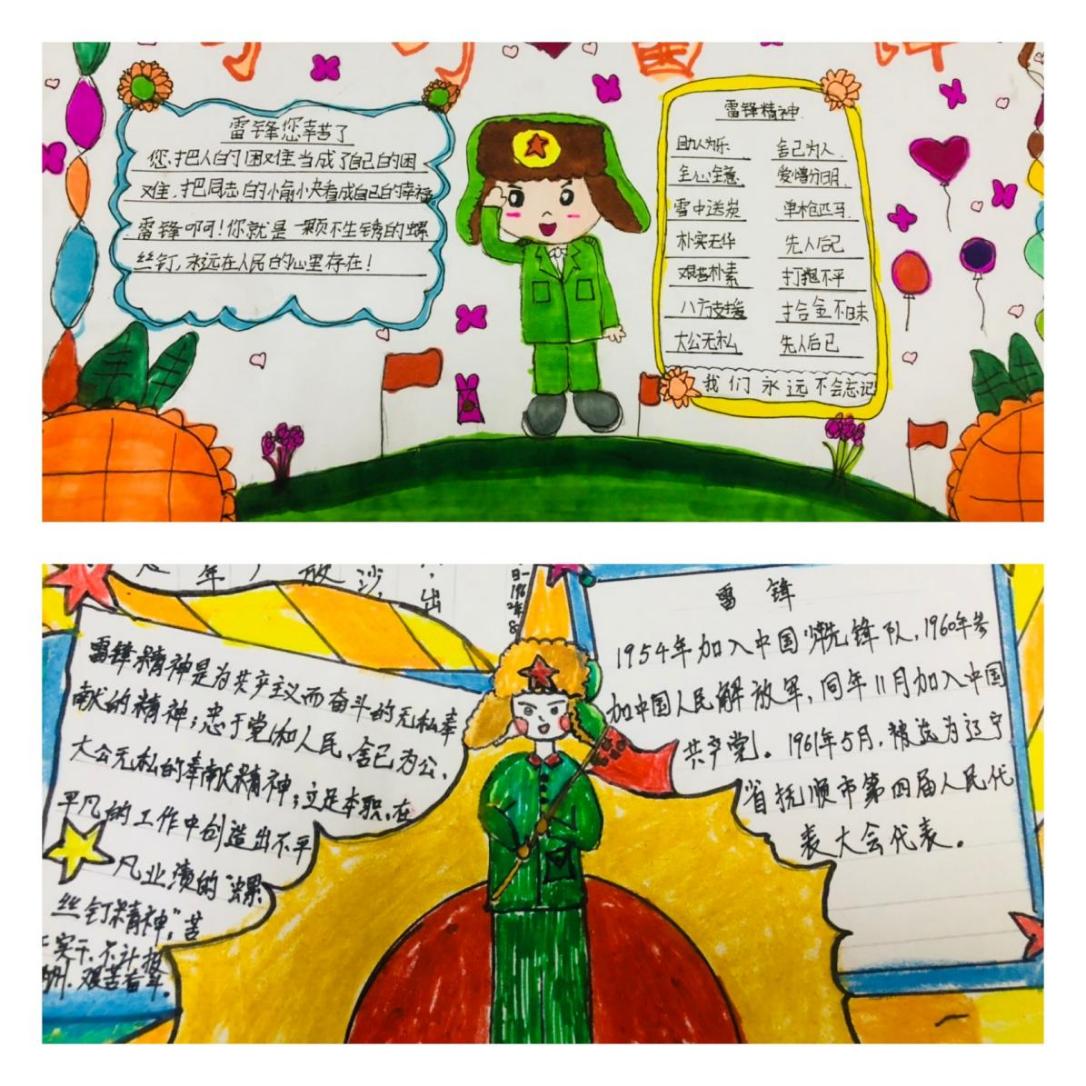 雷锋您辛苦了
您,把人的困难当成了自己的困
难.把同志的愉快看成自己的幸福
雷锋啊!你就是一颗不生锈的螺
丝钉,永远在人民的心里存在!
雷锋精神
助人为乐 舍己为人
全心全意 爱憎分明
雪中送炭 单枪匹马
朴实无华 先人后己
艰苦朴素 打抱不平
八方支援 拾金不昧
大公无私 先人后己
我们永远不会忘记
雷锋精神是为共产主义而奋斗的无私奉
献的精神;忠于党和人民、舍己为公、
大公无私的奉献精神;立足本职、在
平凡的工作中创造出不平
凡业绩的"螺
丝钉精神";苦
实干、不计报
酬、艰苦奋
雷锋
1954年加入中国少年先锋队,1960年参
加中国人民解放军,同年11月加入中国
共产党。1961年5月,被选为辽宁
省抚顺市第四届人民代
表大会代表。